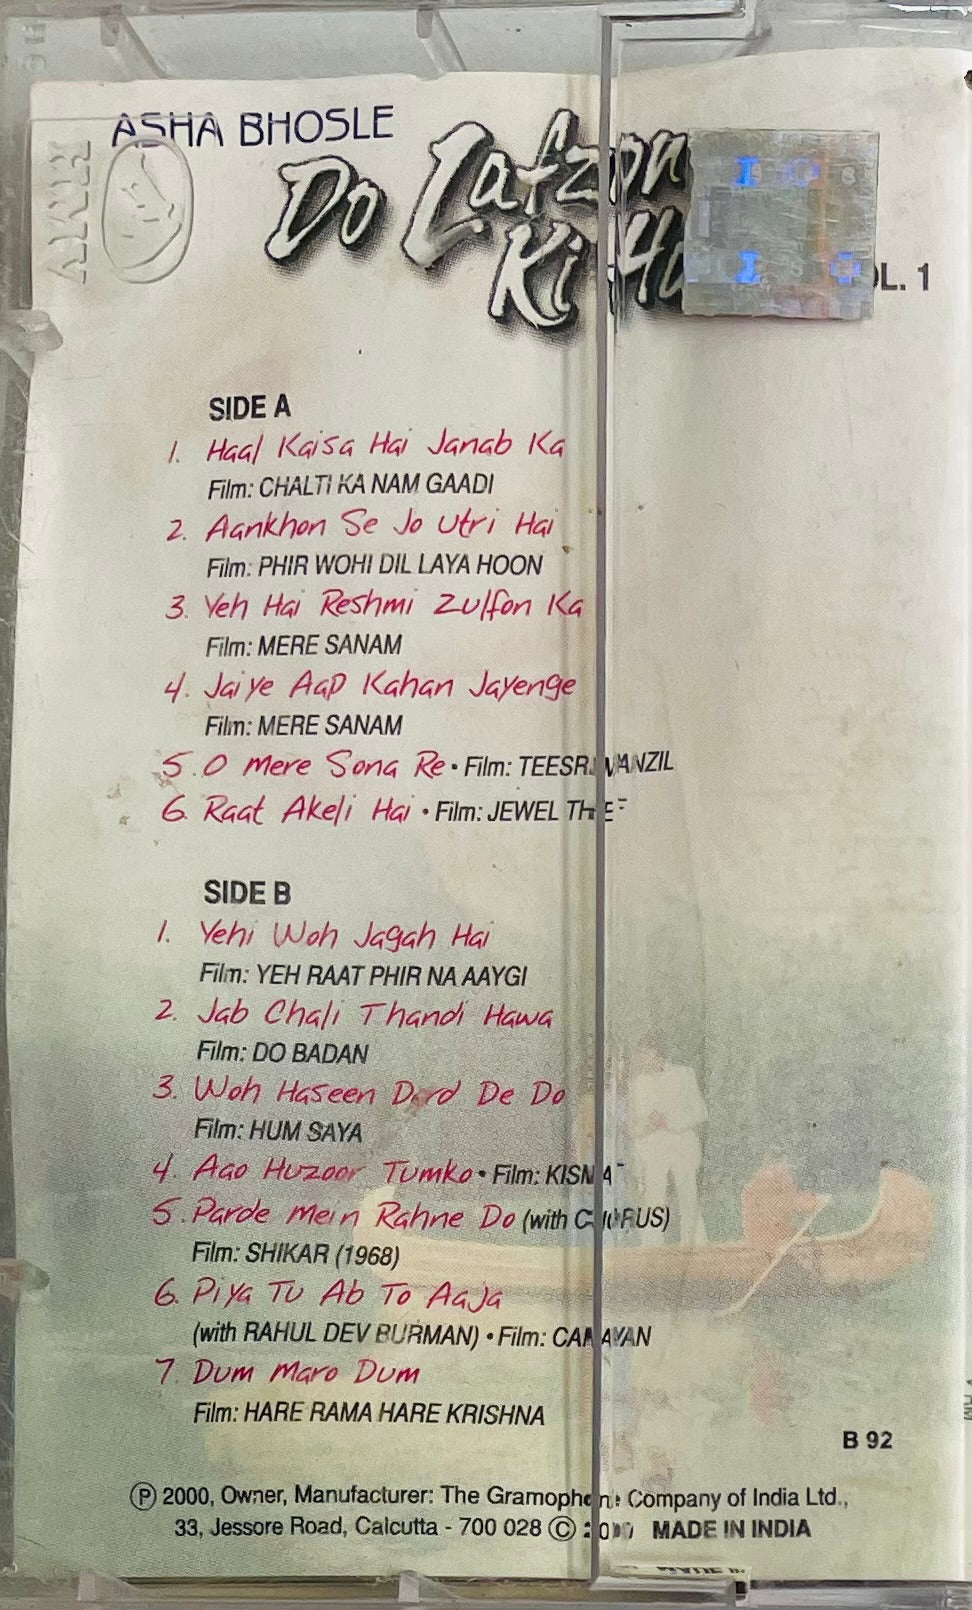 ASHA BHOSLE
Do Lafzon
Ki
VOL. 1
SIDE A
1. Haal Kaisa Hai Janab Ka
Film: CHALTI KA NAM GAADI
2. Aankhon Se Jo Utri Hai
Film: PHIR WOHI DIL LAYA HOON
3. Yeh Hai Reshmi Zulfon Ka
Film: MERE SANAM
4. Jaiye Aap Kahan Jayenge
Film: MERE SANAM
5. O Mere Sona Re • Film: TEESRI MANZIL
6. Raat Akeli Hai • Film: JEWEL THIEF
SIDE B
1. Yehi Woh Jagah Hai
Film: YEH RAAT PHIR NA AAYGI
2. Jab Chali Thandi Hawa
Film: DO BADAN
3. Woh Haseen Dard De Do
Film: HUM SAYA
4. Aao Huzoor Tumko • Film: KISMAT
5. Parde Mein Rahne Do (with CHORUS)
Film: SHIKAR (1968)
6. Piya Tu Ab To Aaja
(with RAHUL DEV BURMAN) • Film: CARAVAN
7 Dum Maro Dum
Film: HARE RAMA HARE KRISHNA
B 92
Ⓟ 2000, Owner, Manufacturer: The Gramophone Company of India Ltd.,
33, Jessore Road, Calcutta - 700 028 © 2000 MADE IN INDIA